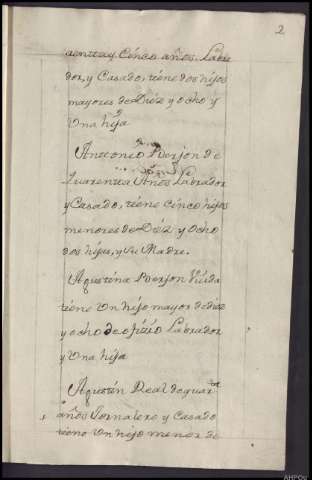 2
arenta y Cinco años Labra
dor, y Casado, tiene dos hijos
mayores de Diéz y ocho y
Una hija
Anttonio de
Quarenta Años Labrador
y Casado, tiene Cinco hijos
menores de Diéz y Ocho
dos hijas, y su Madre.
Agustina Viúda
tiene Un hijo mayor de diez
y ocho de ofizio Labrador
y Una hija
Agustín Real de quarta
años Jornalero y Casado
tiene Un hijo menor de
AHPOu